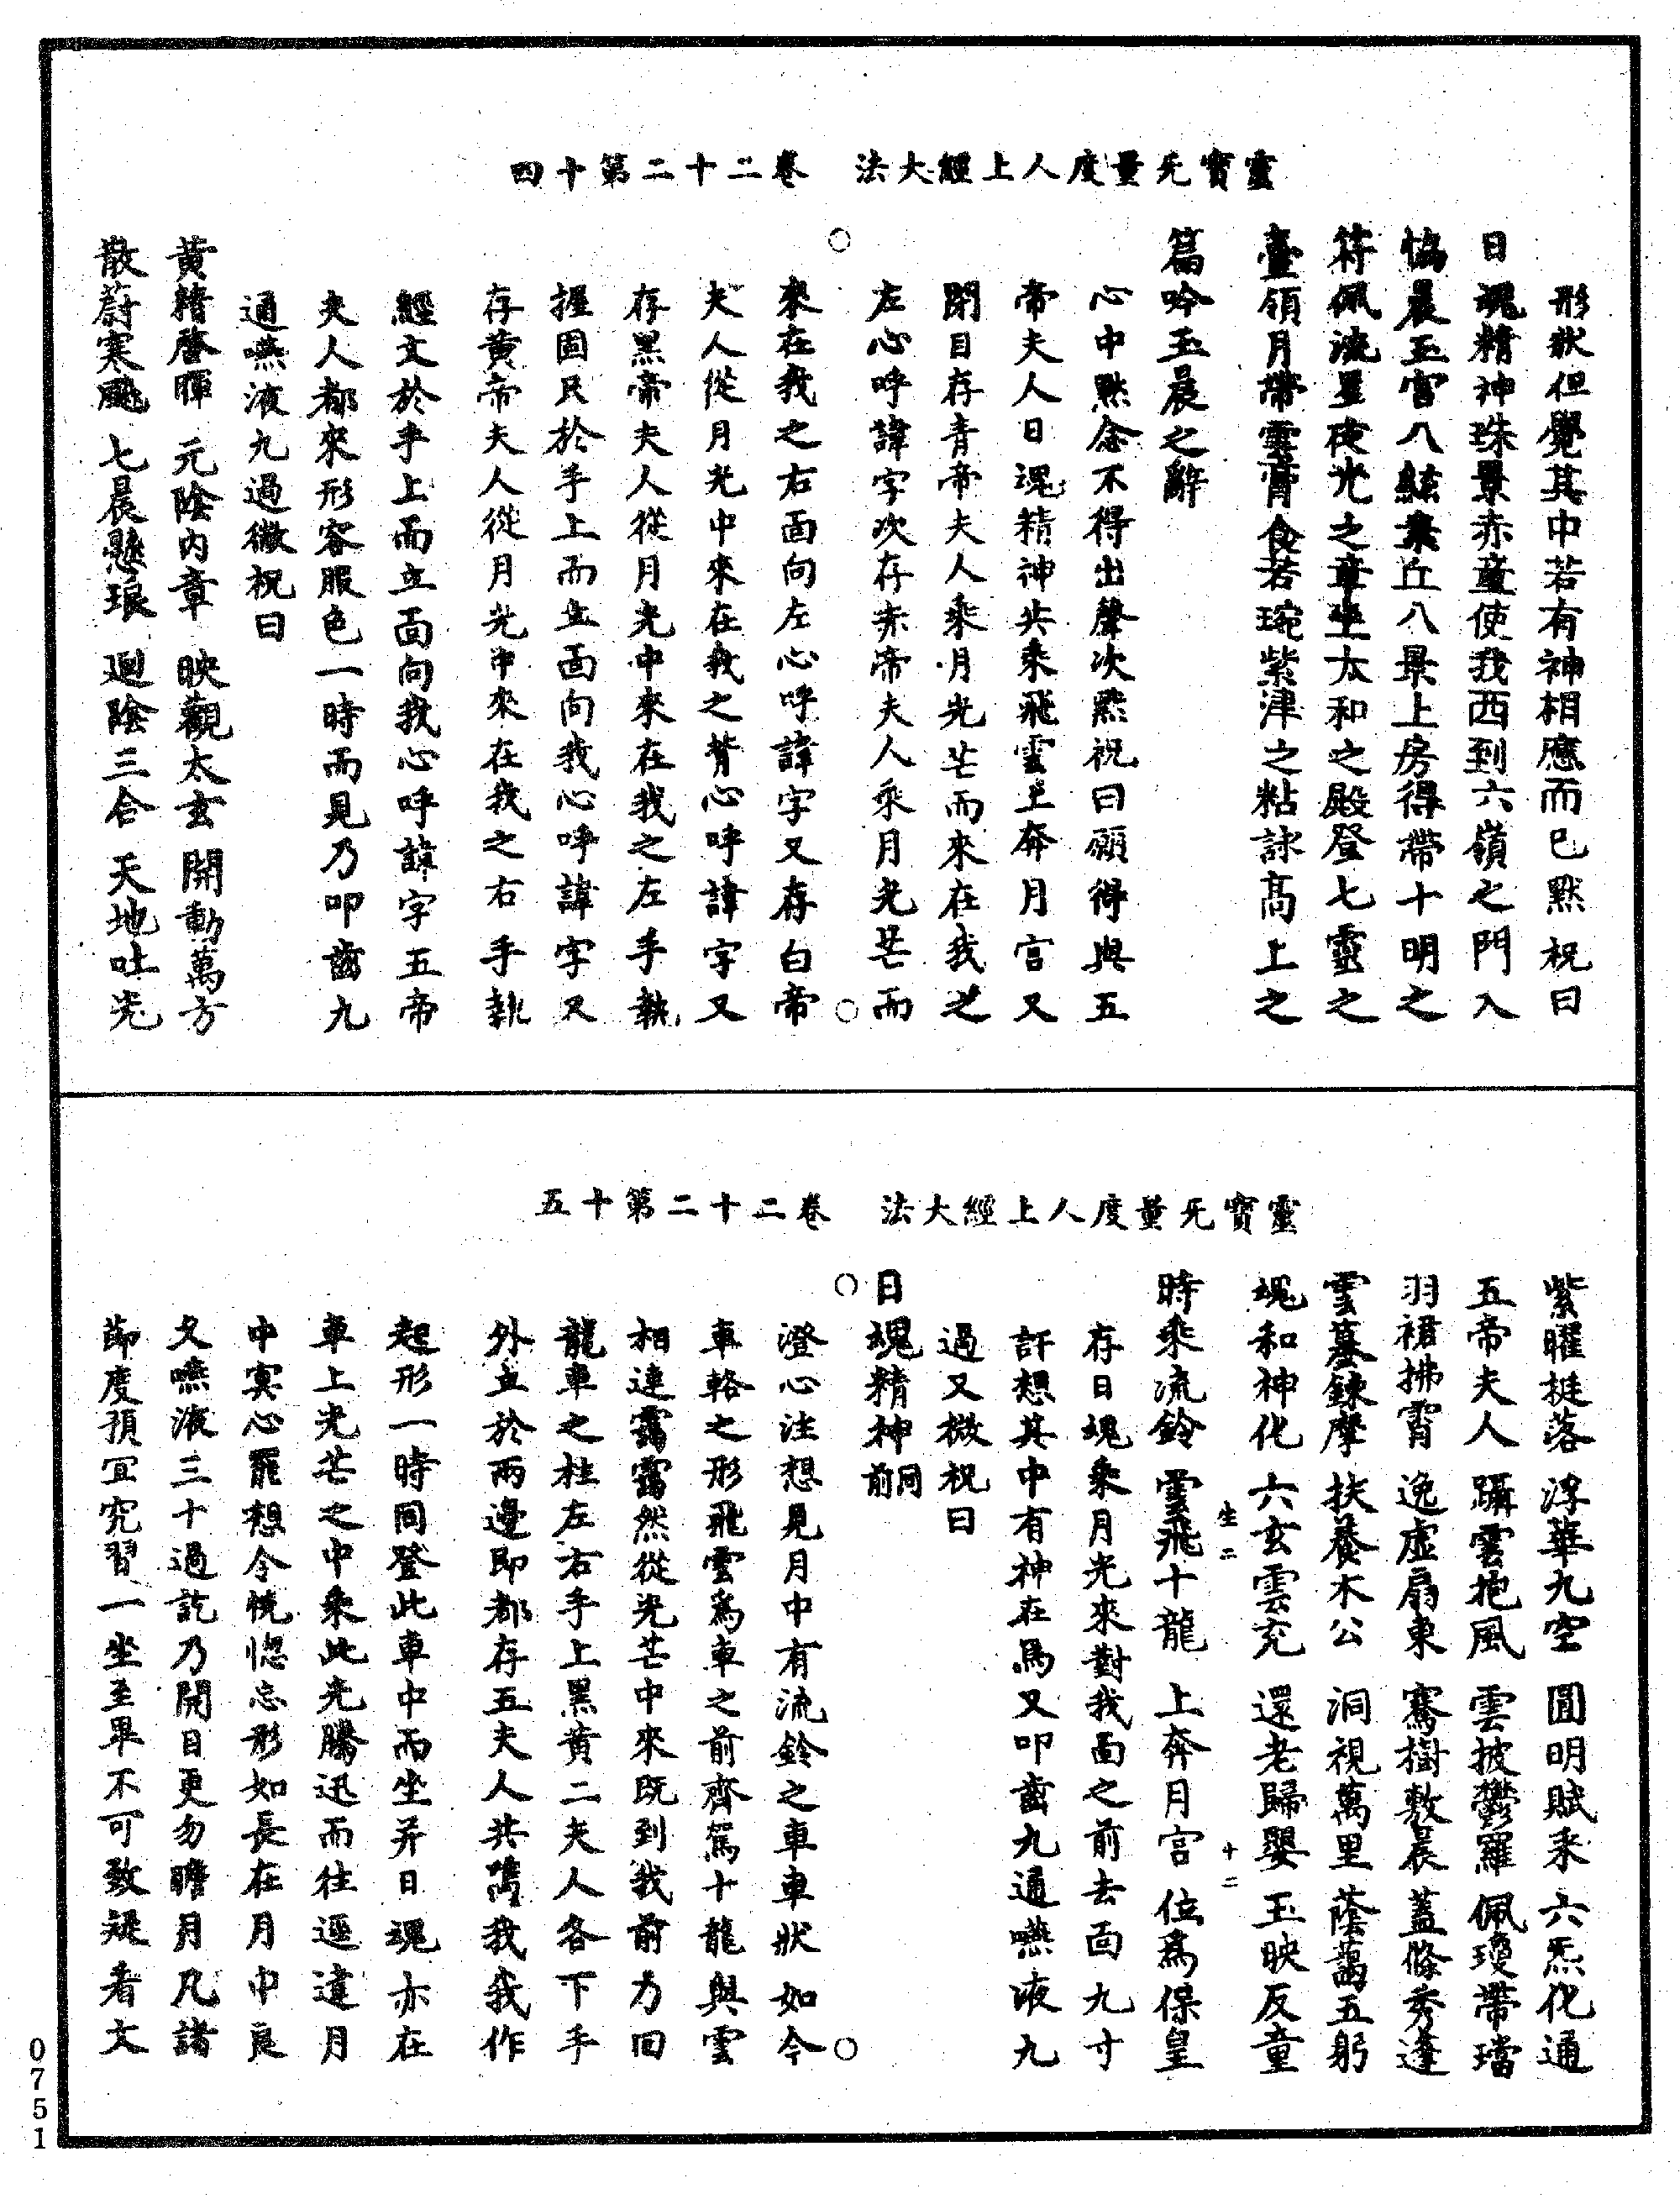 靈寶无量度人上經大法　卷二十二第十四
形狀但覺其中若有神相應而已黙祝曰
日魂精神珠景赤童使我西到六嶺之門入
恊晨玉宫八絃棄丘八景上房得帶十明之
符佩流星夜光之章坐太和之殿登七靈之
臺領月帶雲膏食若琬紫津之粘詠髙上之
篇吟玉晨之辭
心中黙念不得出聲次黙祝曰願得與五
帝夫人日魂精神共乘飛雲上奔月宫又
閉目存青帝夫人乘月光芒而來在我之
左心呼諱字次存赤帝夫人乘月光芒而
來在我之右面向左心呼諱字又存白帝
夫人從月光中來在我之背心呼諱字又
存黑帝夫人從月光中來在我之左手執
握固只於手上而立面向我心呼諱字又
存黄帝夫人從月光中來在我之右手執
經文於手上而立面向我心呼諱字五帝
夫人都來形容服色一時而見乃叩齒九
通嚥液九過微祝曰
黄精啓暉　元陰内章　映觀太玄　開動萬方
散蔚寒飈　七晨懸琅　迴陰三合　天地吐光
靈寶无量度人上經大法　卷二十二第十五
紫曜挺落　浮華九空　圓明賦来　六炁化通
五帝夫人　躡雲抱風　雲披鬱羅　佩瓊帶璫
羽裙拂霄　逸虚扇東　騫樹敷晨　蓋條秀蓬
雲墓鍊摩　扶養木公　洞視萬里　蔭藹五躬
魂和神化　六玄雲充　還老歸嬰　玉映反童
生二　十二
時乘流鈴　雲飛十龍　上奔月宫　位爲保皇
存日魂乘月光來對我面之前去面九寸
訐想其中有神在焉又叩齒九通嚥液九
過又微祝曰
日魂精神同前
澄心注想見月中有流鈴之車車狀如今
車輅之形飛雲爲車之前齊駕十龍與雲
相連靄靄然從光芒中來既到我前力回
龍車之柱左右手上黑黄二夫人各下手
外立於兩邊即都存五夫人共攜我我作
起形一時同登此車中而坐并日魂亦在
車上光芒之中乘此光騰迅而往逕達月
中寞心罷想令恍惚忘形如長在月中良
久嚥液三十過訖乃開目更勿瞻月凡諸
節度預宜究習一坐至畢不可致疑者文
0751